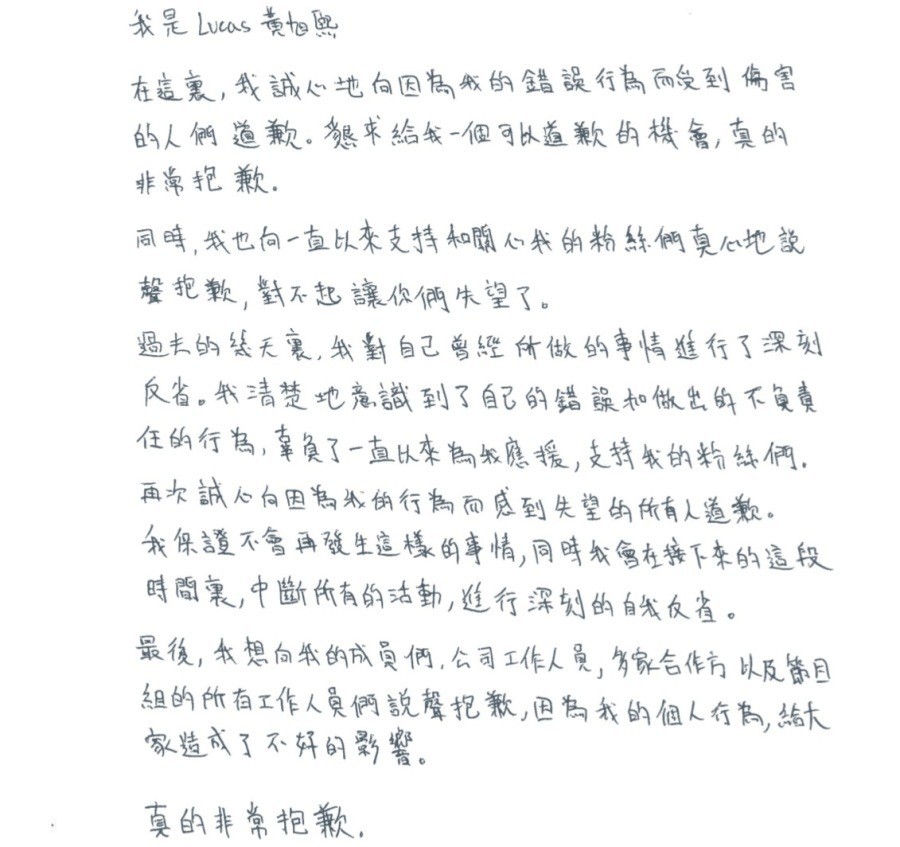 我是 Lucas 黃旭熙
在這裏,我誠心地向因為我的錯誤行為而受到傷害
的人們道歉。懇求給我一個可以道歉的機會,真的
非常抱歉.
同時,我也向一直以來支持和關心我的粉絲們真心地說
聲抱歉,對不起讓你們失望了。
過去的幾天裏,我對自己曾經所做的事情進行了深刻
反省。我清楚地意識到了自己的錯誤和做出的不負責
任的行為,辜負了一直以來為我應援,支持我的粉絲們.
再次誠心向因為我的行為而感到失望的所有人道歉。
我保證不會再發生這樣的事情,同時我會在接下來的這段
時間裏,中斷所有的活動,進行深刻的自我反省。
最後,我想向我的成員們,公司工作人員,多家合作方以及節目
組的所有工作人員們說聲抱歉,因為我的個人行為,給大
家造成了不好的影響。
真的非常抱歉.